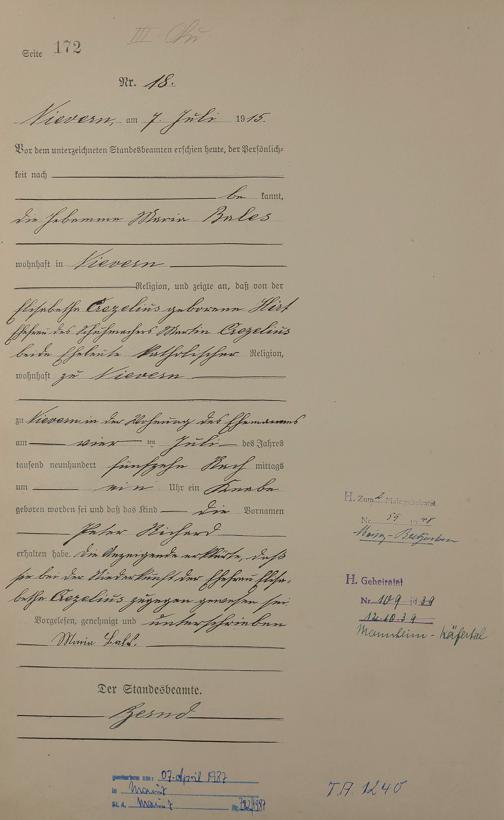 III.
Seite 172
Nr. 18.
Nievern, am 7. Juli 1915.
Vor dem unterzeichneten Standesbeamten erschien heute, der Persönlich-
keit nach
be kannt,
die Hebamme Maria Bales
wohnhaft in Nievern
Religion, und zeigte an, daß von der
Elisabetha Crezelius geborene Hirt
Ehefrau des Schuhmachers Martin Crezelius
beide Eheleute katholischer Religion,
wohnhaft zu Nievern
zu Nievern in der Wohnung des Ehemannes
am vier ten Juli des Jahres
tausend neunhundert fünfzehn Nach mittags
um ein Uhr ein Knabe
geboren worden sei und daß das Kind die Vornamen
Peter Richard
erhalten habe. Die Anzeigende erklärte, daß
sie bei der Niederkunft der Ehefrau Elisa-
betha Crezelius zugegen gewesen sei
Vorgelesen, genehmigt und unterschrieben
Maria
Der Standesbeamte.
Bernd
H. Zum 2. Male geheiratet
Nr. 19
H. Geheiratet
Nr. 109 / 39
12.10.39
Mannheim - Käfertal
gestorben am: 07. April 1987
in Mainz
St. A. Mainz Nr.
T.A. 1240